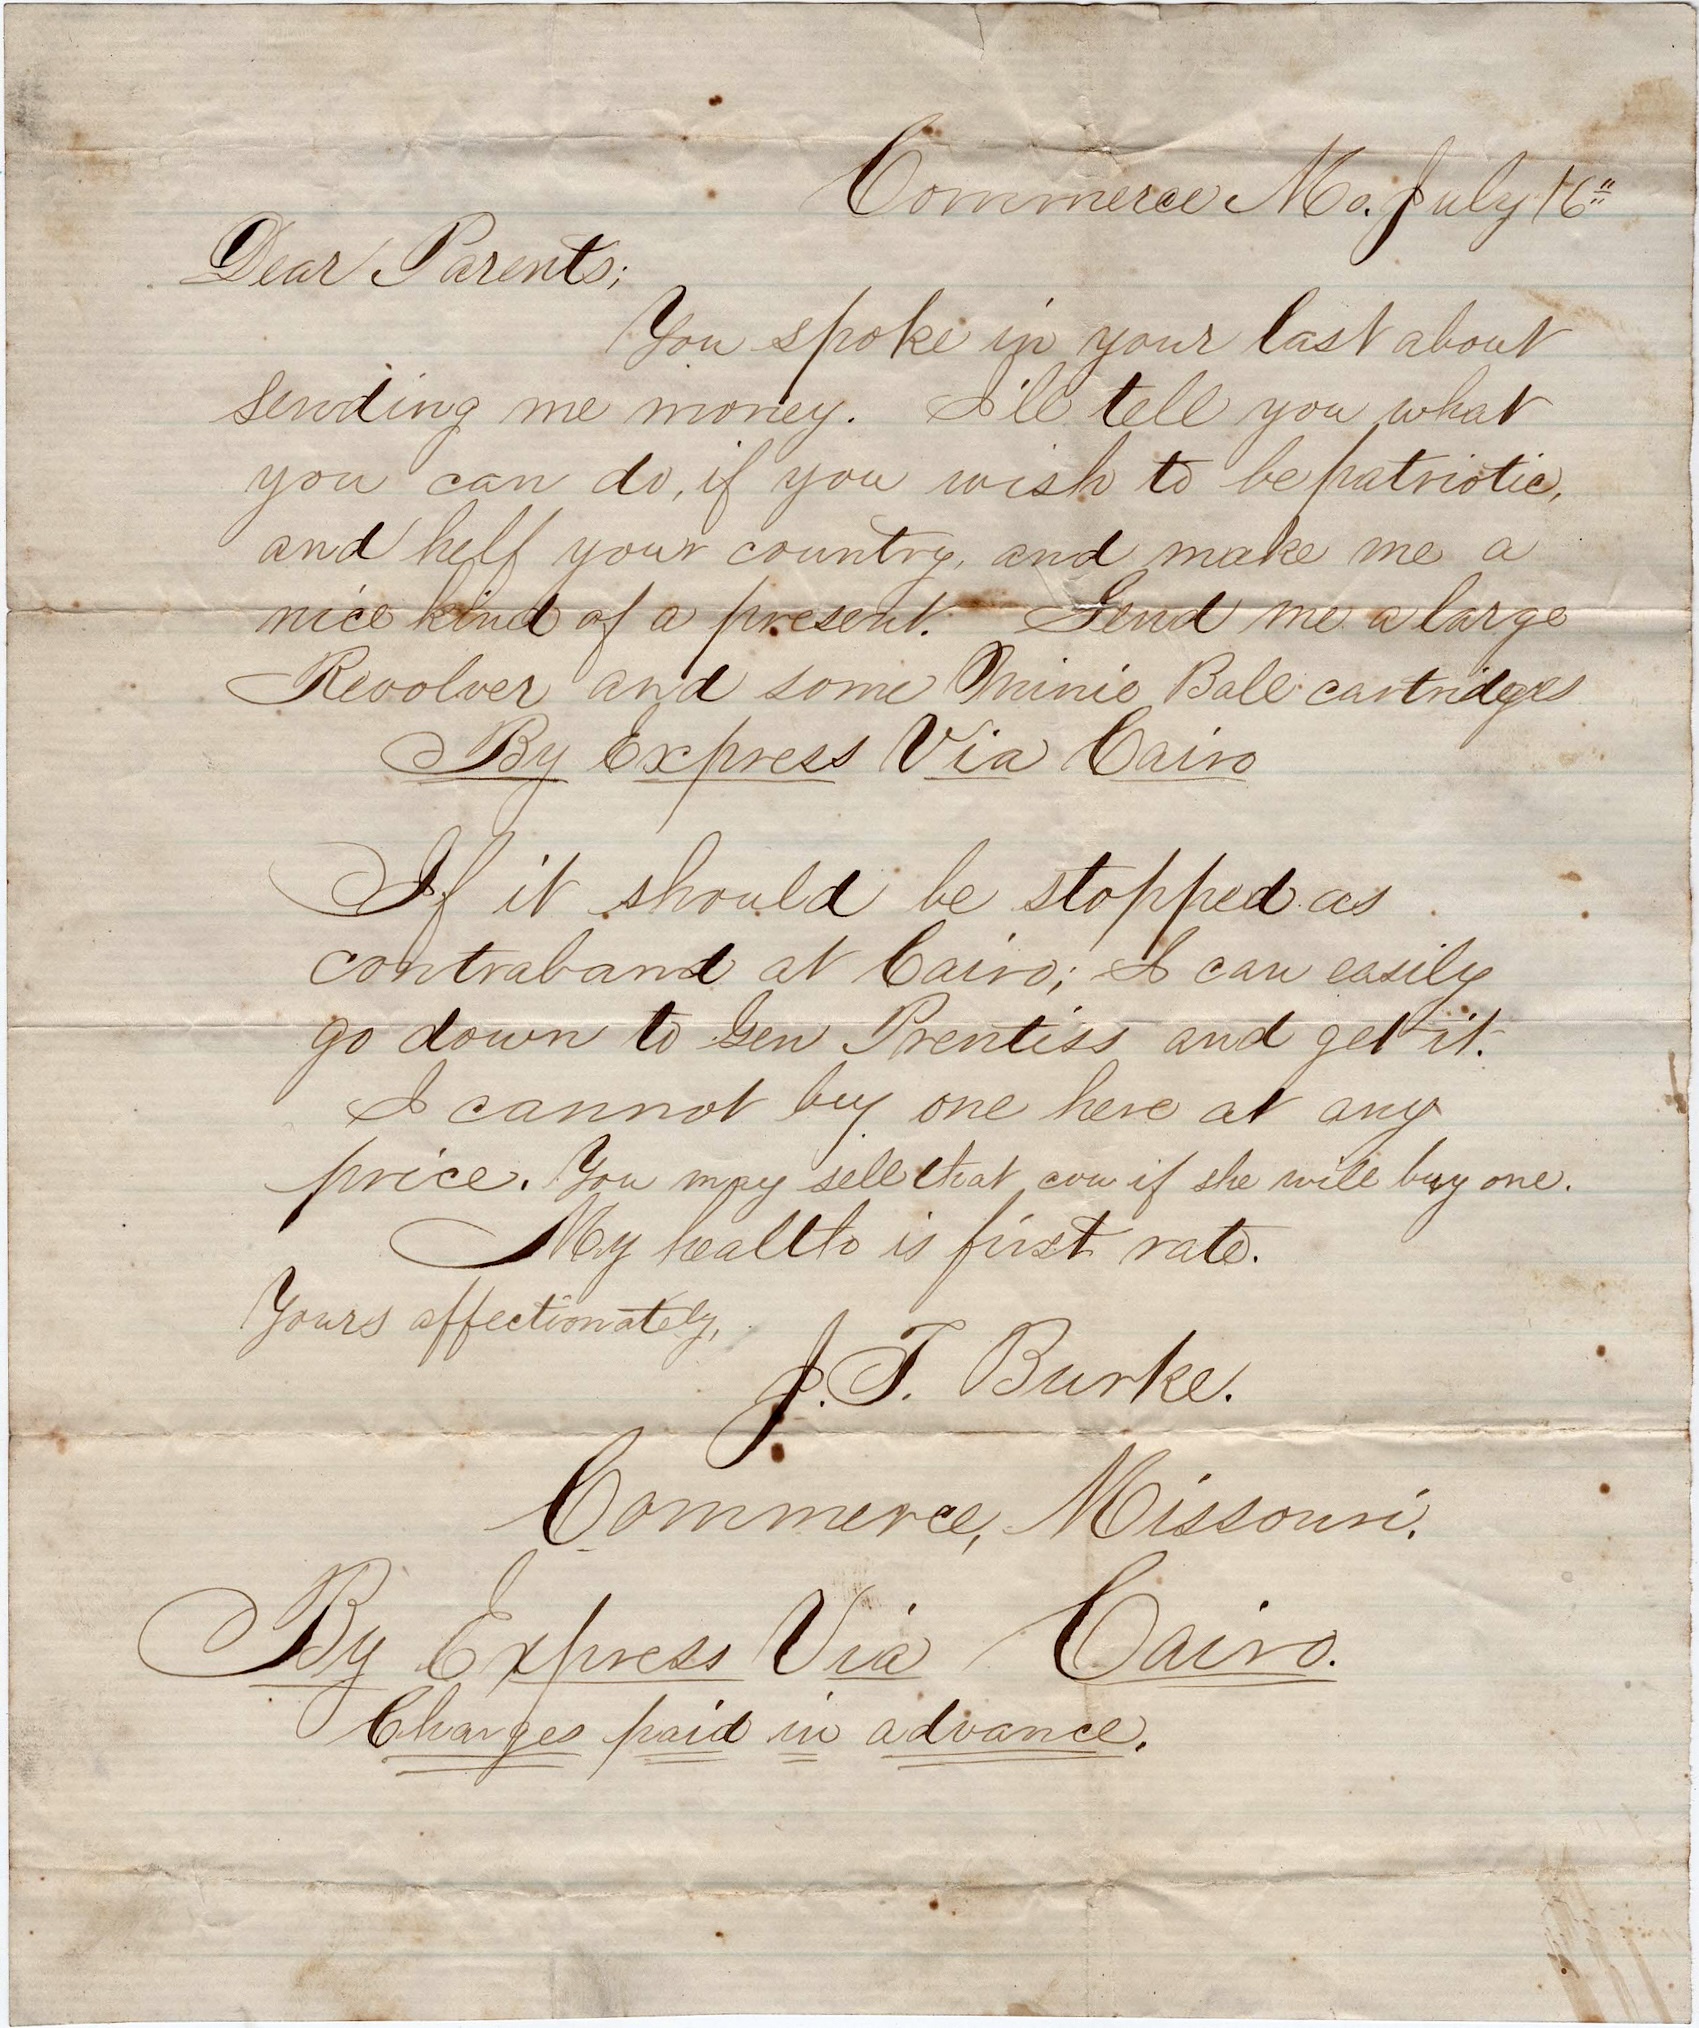 Commerce Mo. July 16"
Dear Parents;
You spoke in your last about
sending me money. I'll tell you what
you can do, if you wish to be patriotic,
and help your country, and make me a
nice kind of a present. Send me a large
Revolver and some Minie Ball cartridges
By Express Via Cairo
If it should be stopped as
contraband at Cairo; I can easily
go down to Gen Prentiss and get it.
I cannot buy one here at any
price. You may sell that cow if she will buy one.
My health is first rate.
Yours affectionately,
J. T. Burke.
Commerce, Missouri.
By Express Via Cairo.
Charges paid in advance.